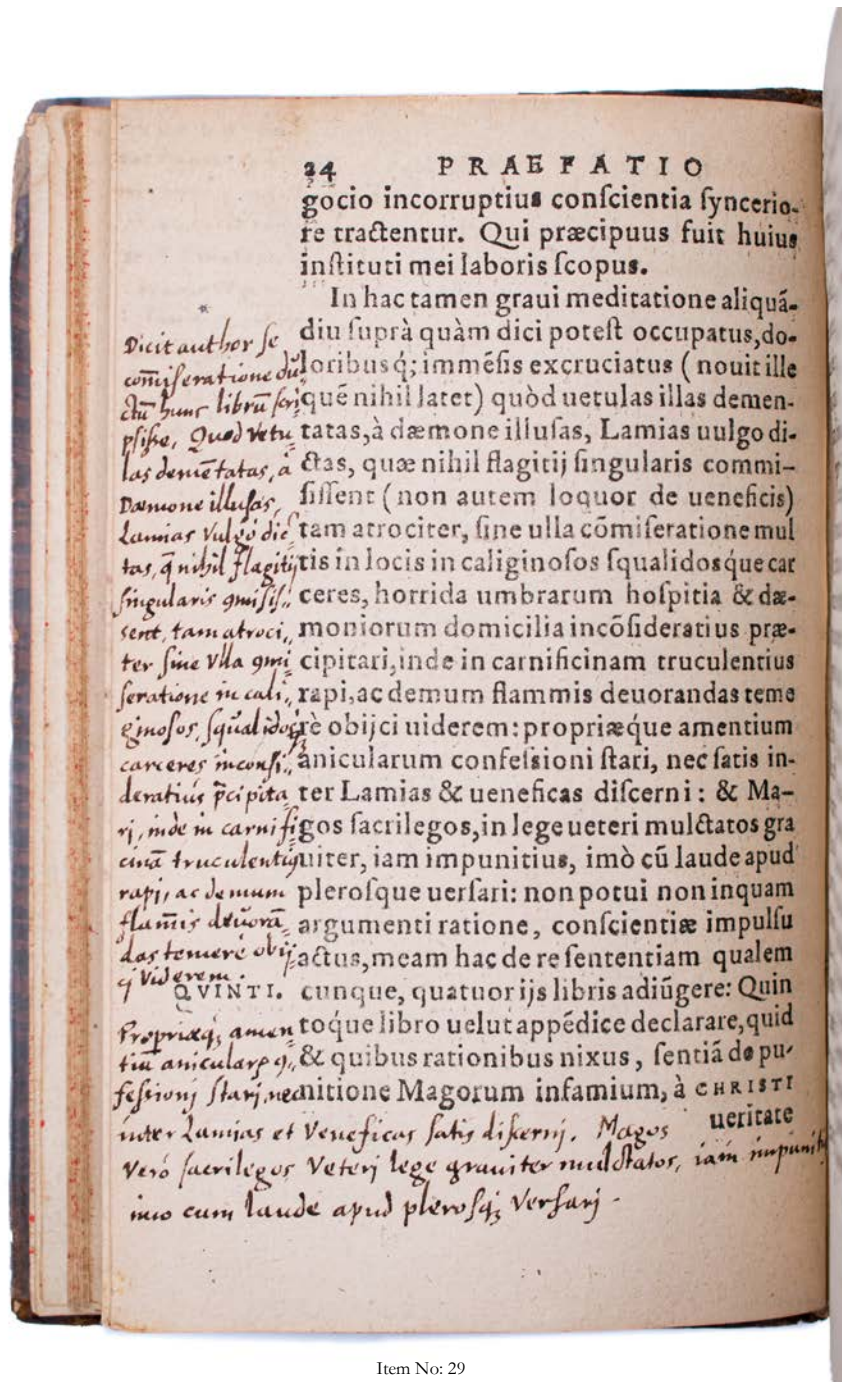 24 PRAEFATIO
gocio incorruptius conſcientia ſyncerio-
re tractentur. Qui præcipuus fuit huius
inſtituti mei laboris ſcopus.
In hac tamen graui meditatione aliquã-
diu ſuprà quàm dici poteſt occupatus, do-
loribusq́; immẽſis excruciatus (nouit ille
quẽ nihil latet) quòd uetulas illas demen-
tatas, à dæmone illuſas, Lamias uulgo di-
ctas, quæ nihil flagitij ſingularis commi-
ſiſſent (non autem loquor de ueneficis)
tam atrociter, ſine ulla cõmiſeratione mul
tis in locis in caliginoſos ſqualidosq́ue car
ceres, horrida umbrarum hoſpitia & dæ-
moniorum domicilia incõſideratius præ-
cipitari, inde in carnificinam truculentius
rapi, ac demum flammis deuorandas teme
rè obijci uiderem: propriæque amentium
anicularum confeſsioni ſtari, nec ſatis in-
ter Lamias & ueneficas diſcerni: & Ma-
gos ſacrilegos, in lege ueteri mulctatos gra
uiter, iam impunitius, imò cũ laude apud
pleroſque uerſari: non potui non inquam
argumenti ratione, conſcientiæ impulſu
actus, meam hac de re ſententiam qualem
cunque, quatuor ijs libris adiũgere: Quin
toque libro uelut appẽdice declarare, quid
& quibus rationibus nixus, ſentiã de pu-
nitione Magorum infamium, à CHRISTI
ueritate
Dicit author ſe
com̃iſeratione du
ctũ hunc librũ ſcri
pſiſſe, Quod vetu
las demẽtatas, à
Dæmone illuſas,
Lamias vulgò dic
tas, q̃ nihil flagitij
ſingularis 9miſiſ
ſent, tam atroci
ter ſine vlla 9mi
ſeratione in cali
ginoſos, ſqualidoſq́;
carceres inconſi
deratius p̃cipita
rj, inde in carnifi
cinã truculentiꝰ
rapi, ac demum
flam̃is deuorã
das temerè obij
cj viderem.
QVINTI.
Propriæq́; amen
tiũ anicularꝝ 9
feſsionj ſtarj, nec
inter Lamias et Veneficas ſatis diſcernj. Magos
Verò ſacrilegos Veterj lege grauiter mulctatos, iam impunitꝰ
imo cum laude apud pleroſq́; Verſarj.
Item No: 29